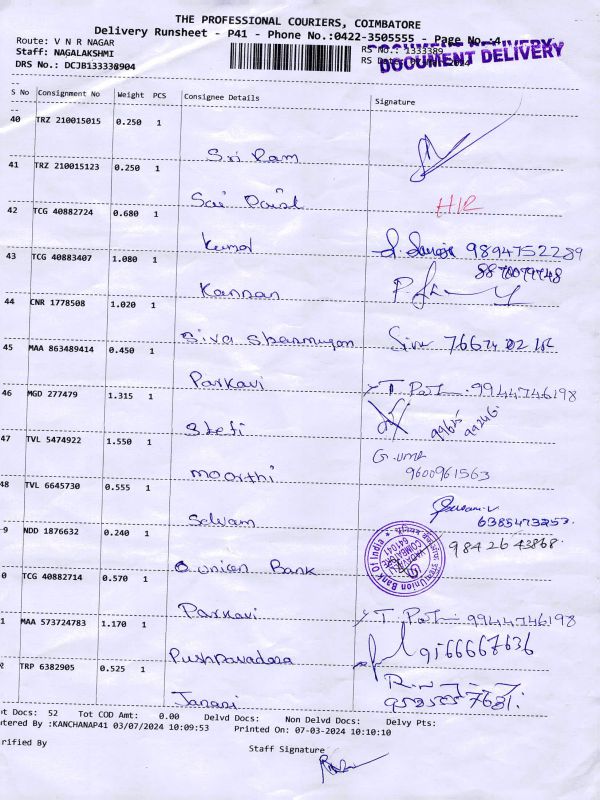 THE PROFESSIONAL COURIERS, COIMBATORE
Delivery Runsheet - P41 - Phone No.:0422-3505555 - Page No.:4
Route: V N R NAGAR
RS No.: 1333389
Staff: NAGALAKSHMI
RS Date:
DOCUMENT DELIVERY
DRS No.: DCJB133338904
S No Consignment No Weight PCS Consignee Details Signature
40 TRZ 210015015 0.250 1
Sri Ram
41 TRZ 210015123 0.250 1
Sai
42 TCG 40882724 0.680 1
Kumal 9894752289
43 TCG 40883407 1.080 1
Kannan
44 CNR 1778508 1.020 1
Siva Shanmugam Siva
45 MAA 863489414 0.450 1
Parkavi 9944746198
46 MGD 277479 1.315 1
Stefi
47 TVL 5474922 1.550 1
moorthi G. uma
9600961563
48 TVL 6645730 0.555 1
Selvam
6385473253.
9 NDD 1876632 0.240 1
union Bank 9842643868.
Union Bank Of India
COIMBATORE
0 TCG 40882714 0.570 1
Parkavi 9944746198
1 MAA 573724783 1.170 1
9566667636
2 TRP 6382905 0.525 1
Janani
t Docs: 52 Tot COD Amt: 0.00 Delvd Docs: Non Delvd Docs: Delvy Pts:
tered By :KANCHANAP41 03/07/2024 10:09:53 Printed On: 07-03-2024 10:10:10
rified By
Staff Signature